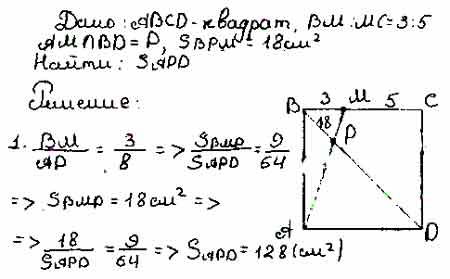 Дано: ABCD - квадрат, BM:MC=3:5
AM∩BD=P, SBPM=18см²
Найти: SAPD
Решение:
1. BM/AD = 3/8 => SBMP/SAPD = 9/64
=> SBMP=18см² =>
=> 18/SAPD = 9/64 => SAPD=128(см²)
B 3 M 5 C
18 P
A D